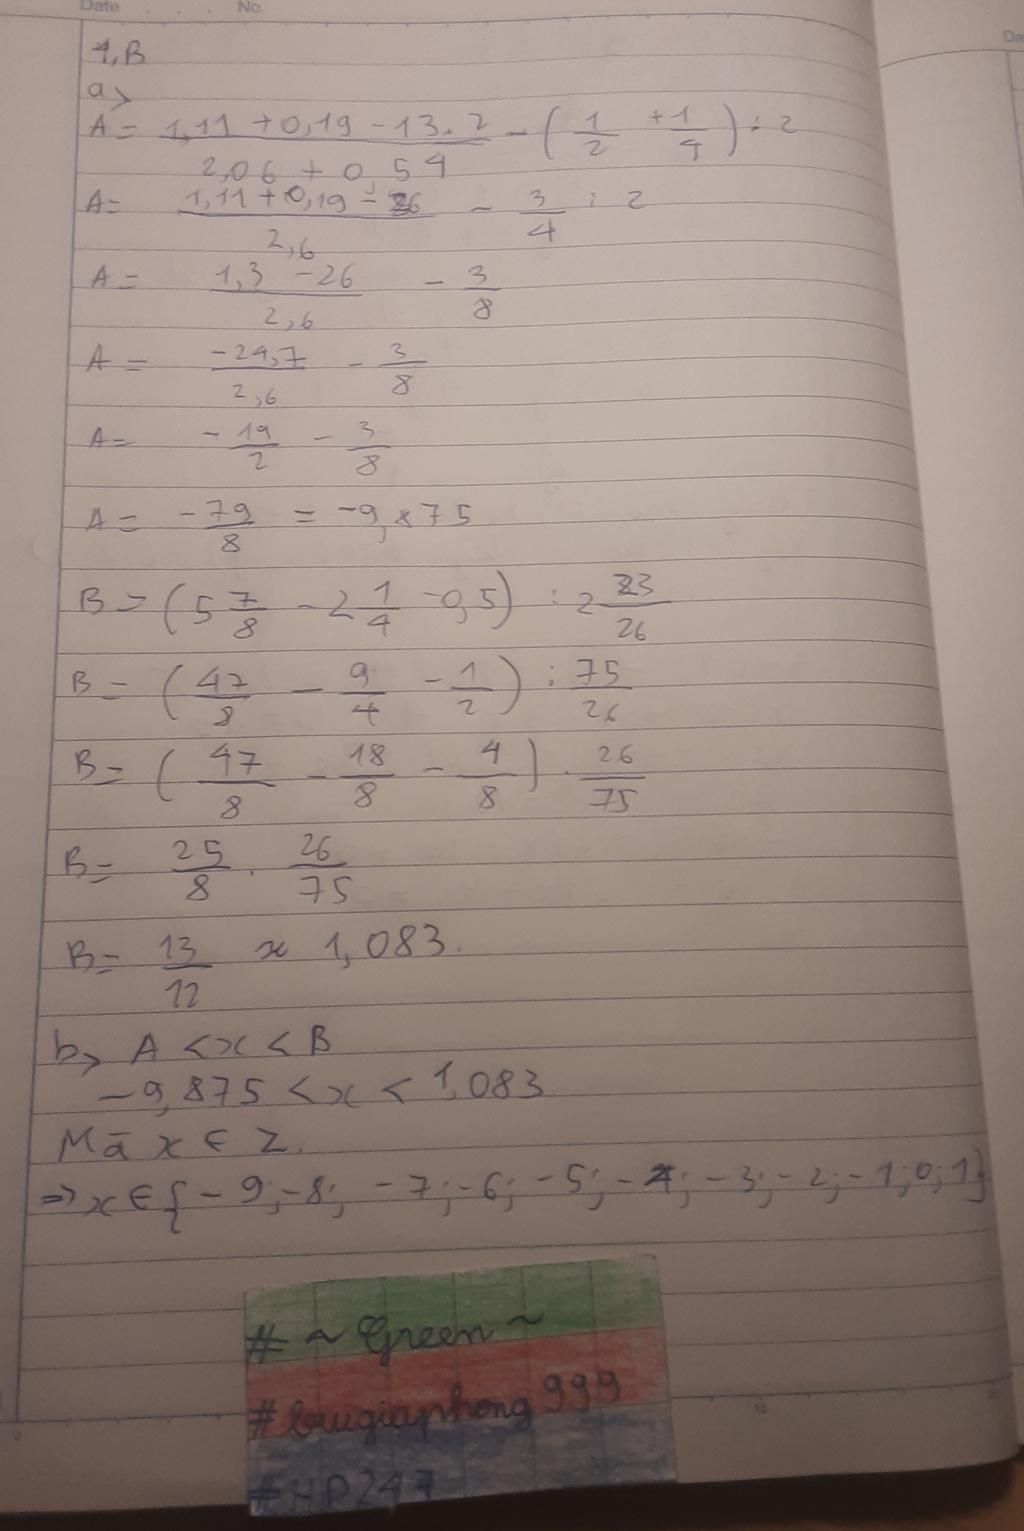 Date . . . No.
Da
1, B
a>
A = (1,11 + 0,19 - 13.2)/(2,06 + 0,54) - (1/2 + 1/4) : 2
A = (1,11 + 0,19 - 26)/2,6 - 3/4 : 2
A = (1,3 - 26)/2,6 - 3/8
A = -24,7/2,6 - 3/8
A = -19/2 - 3/8
A = -79/8 = -9,875
B = (5 7/8 - 2 1/4 - 0,5) : 2 23/26
B = (47/8 - 9/4 - 1/2) : 75/26
B = (47/8 - 18/8 - 4/8) . 26/75
B = 25/8 . 26/75
B = 13/12 ≈ 1,083.
b> A < x < B
-9,875 < x < 1,083
Mà x ∈ Z.
=> x ∈ {-9; -8; -7; -6; -5; -4; -3; -2; -1; 0; 1}
# ~ Green ~
#luugiaphong999
#HP247